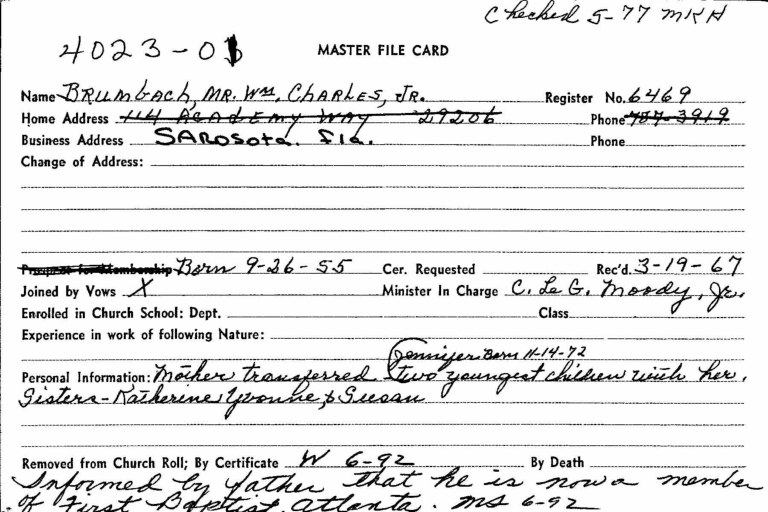 Checked 5-77 MKH
4023-01
MASTER FILE CARD
Name BRUMBACH, MR. WM. CHARLES, JR. Register No. 6469
Home Address 114 ACADEMY WAY 29206 Phone 787-3919
Business Address SARosota. Fla. Phone
Change of Address:
Prospect for Membership Born 9-26-55 Cer. Requested Rec'd. 3-19-67
Joined by Vows X Minister In Charge C. LeG. Moody, Jr.
Enrolled in Church School: Dept. Class
Experience in work of following Nature:
Jennifer Born 11-14-72
Personal Information: Mother transferred two youngest children with her.
Sisters - Katherine Yvonne & Susan
Removed from Church Roll; By Certificate W 6-92 By Death
Informed by father that he is now a member
of First Baptist, Atlanta. MS 6-92